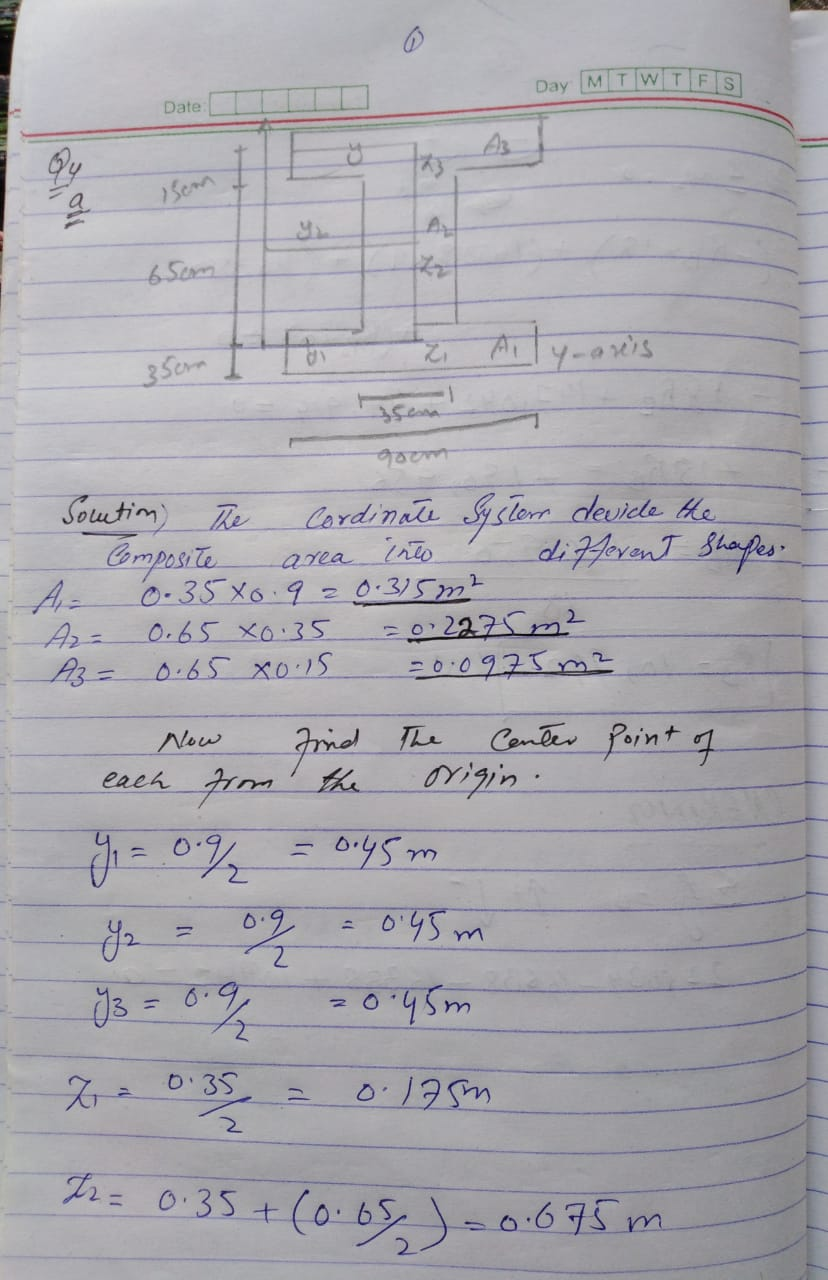 1
Date:
Day M T W T F S
Q4
a
15cm
y
Z3
A3
y2
A2
65cm
Z2
35cm
y1
Z1
A1
y-axis
35cm
90cm
Solution) The Cordinate System devide the
Composite area into different Shapes.
A1= 0.35 x 0.9 = 0.315 m²
A2= 0.65 x 0.35 = 0.2275 m²
A3= 0.65 x 0.15 = 0.0975 m²
Now find The Center Point of
each from the origin.
y1 = 0.9/2 = 0.45 m
y2 = 0.9/2 = 0.45 m
y3 = 0.9/2 = 0.45m
Z1 = 0.35/2 = 0.175m
Z2= 0.35 + (0.65/2) = 0.675 m